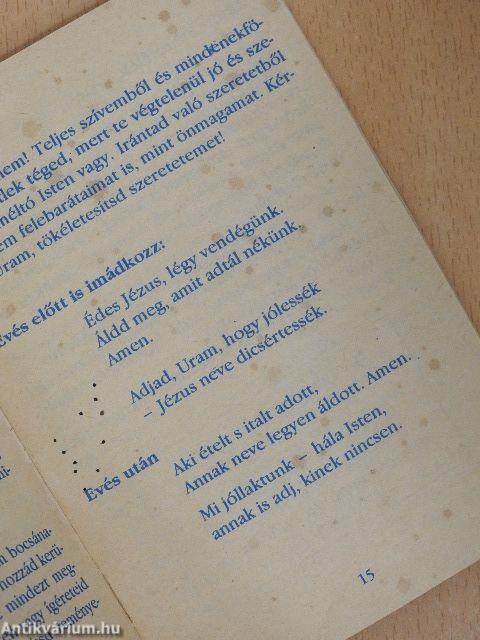 nem! Teljes szívemből és mindenekfö-
lek téged, mert te végtelenül jó és sze-
méltó Isten vagy. Irántad való szeretetből
em felebarátaimat is, mint önmagamat. Kér-
Uram, tökéletesítsd szeretetemet!
Evés előtt is imádkozz:
Édes Jézus, légy vendégünk.
Áldd meg, amit adtál nékünk.
Amen.
Adjad, Uram, hogy jólessék
– Jézus neve dicsértessék.
Evés után
Aki ételt s italt adott,
Annak neve legyen áldott. Amen.
Mi jóllaktunk – hála Isten,
annak is adj, kinek nincsen.
15
bocsána-
hozzád kerü-
mindezt meg-
ígéreteid
Antikvárium.hu